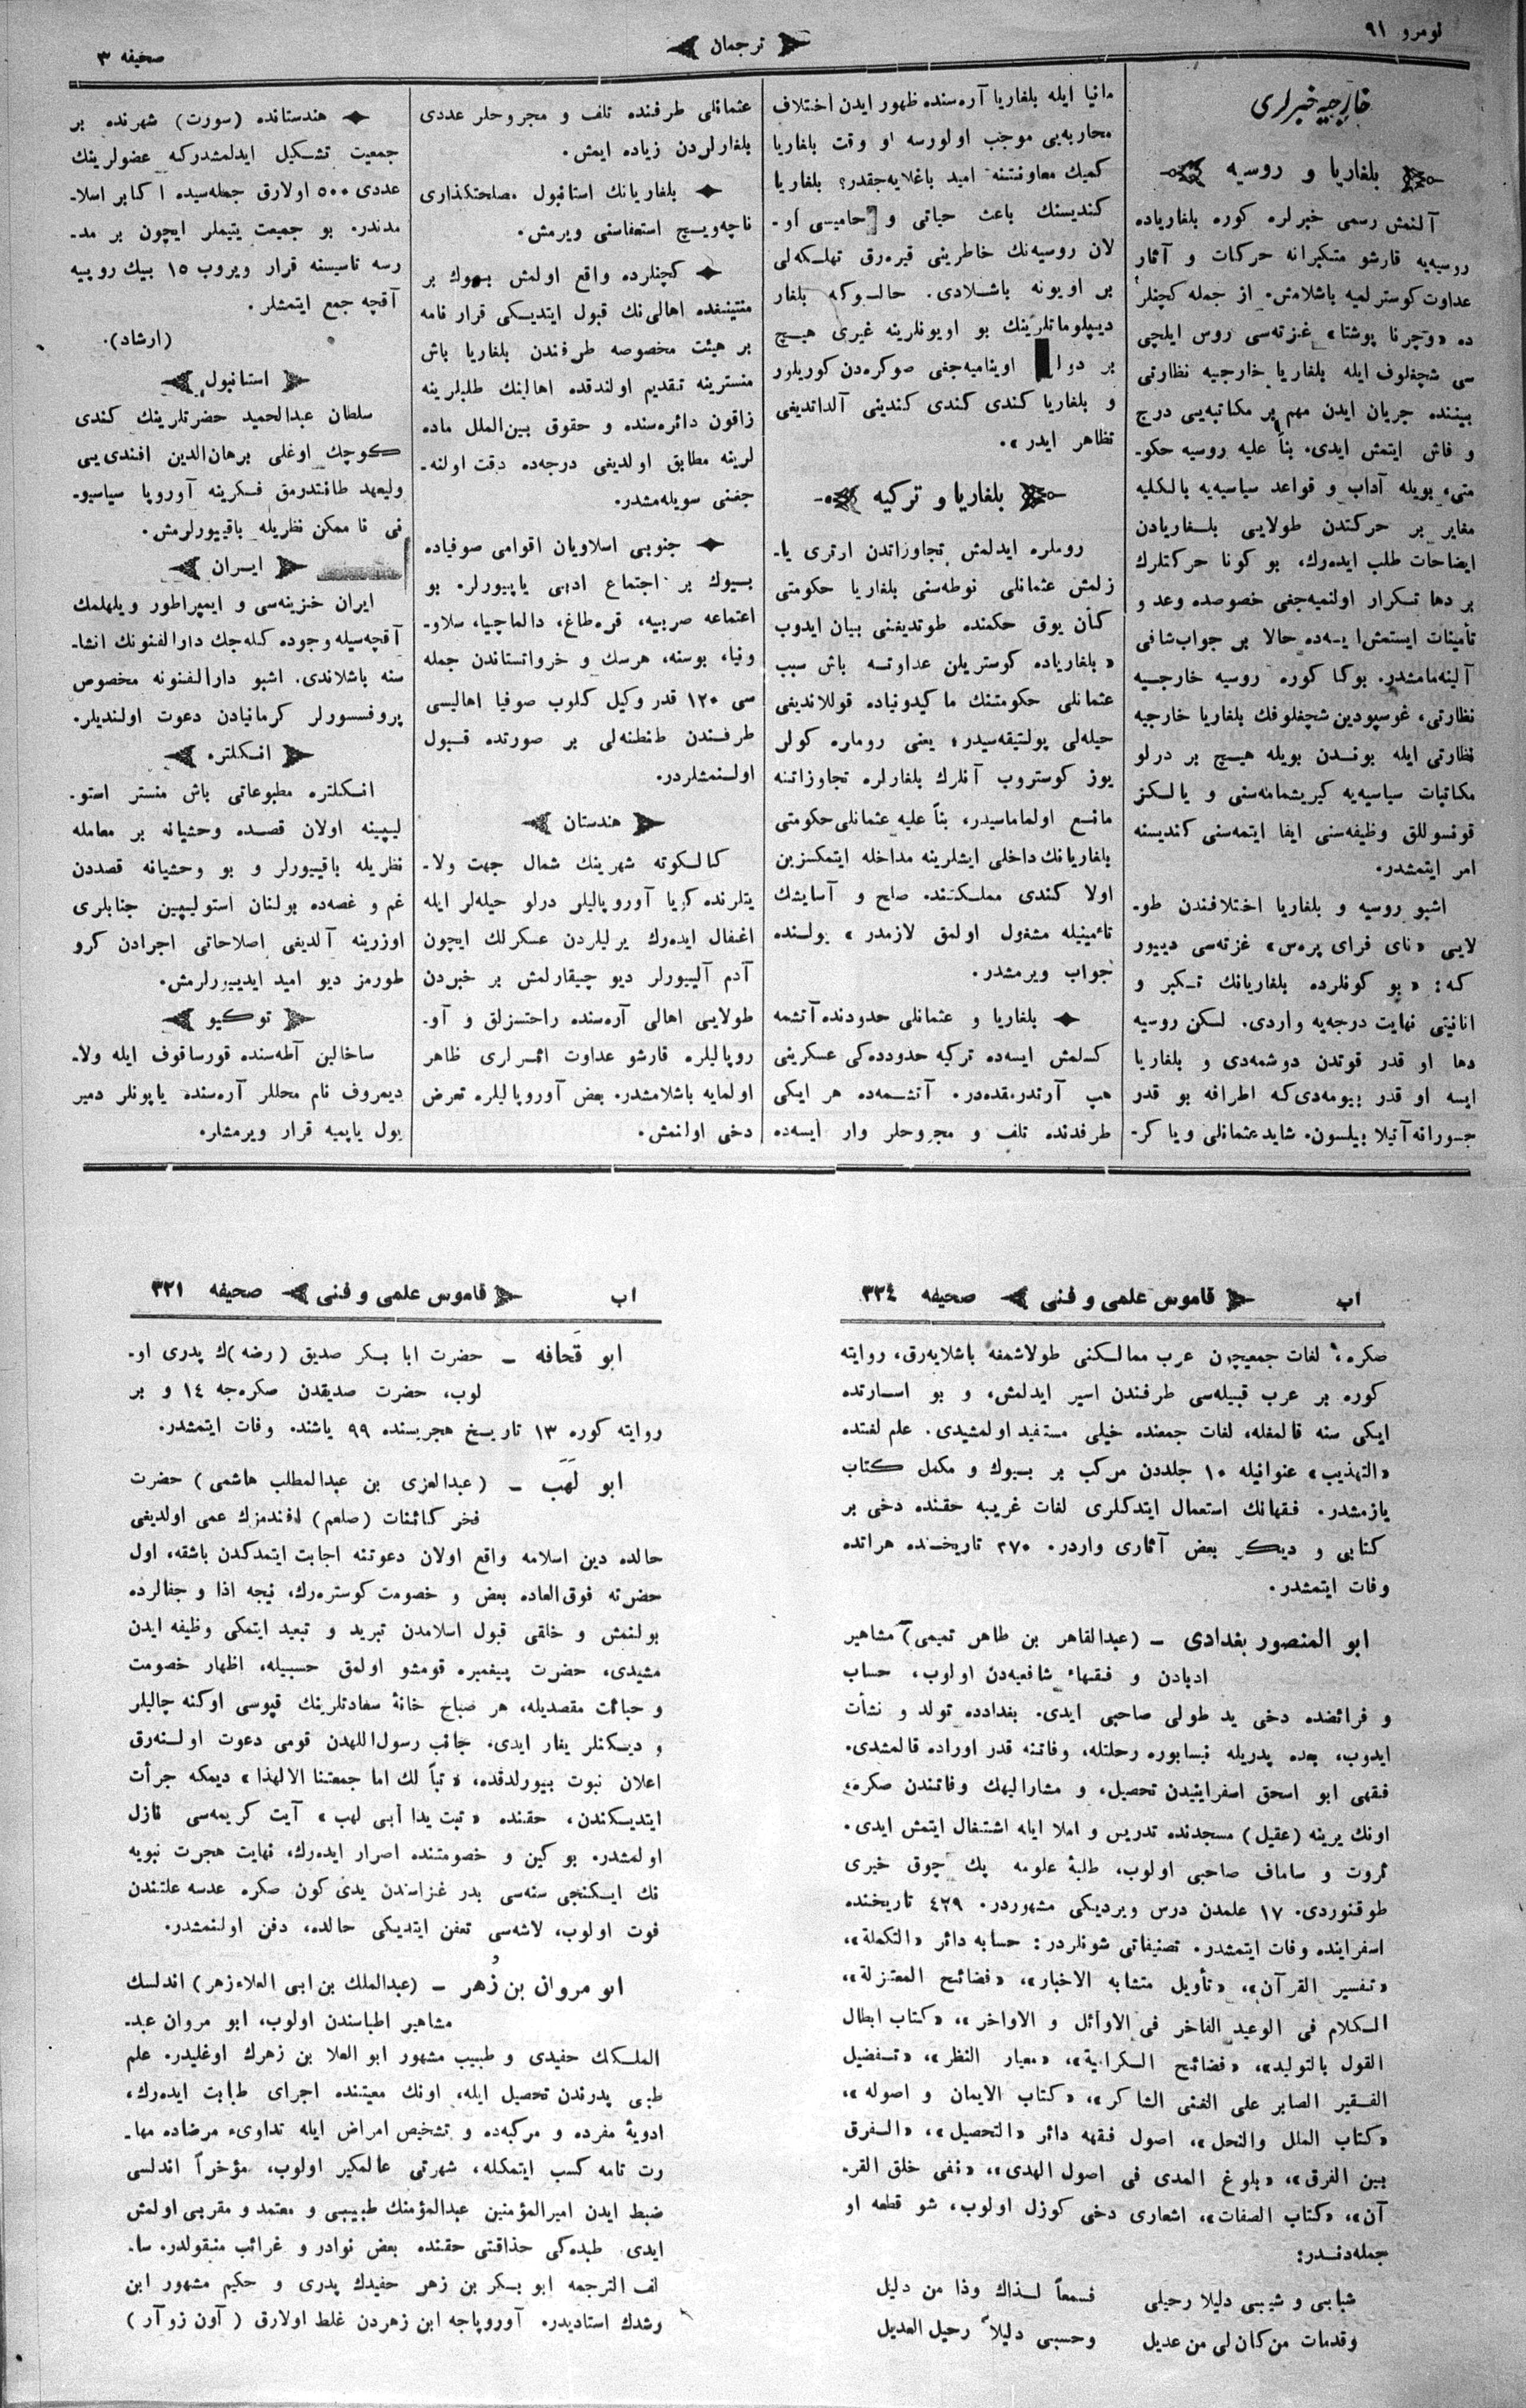 نومرو ٩١
ترجمان
صحیفه ٣
خارجیه خبرلری
بلغاریا و روسیه
آلنمش رسمی خبرلره كوره بلغاریاده
روسیه‌یه قارشو متكبرانه حركات و آثار
عداوت كوسترلمیه باشلامش. از جمله كچنلر
ده «وچرنا پوشتا» غزته‌سی روس ایلچی
سی شچغلوف ایله بلغاریا خارجیه نظارتی
بیننده جریان ایدن مهم بر مكاتبه‌یی درج
و فاش ایتمش ایدی. بناً علیه روسیه حكو-
متی، بویله آداب و قواعد سیاسیه‌یه بالكلیه
مغایر بر حركتدن طولایی بلغاریادن
ایضاحات طلب ایده‌رك، بو كونا حركتلرك
بر دها تكرار اولنمیه‌جغی خصوصده وعد و
تأمینات ایستمش ایسه‌ده حالا بر جواب شافی
آلینه‌مامشدر. بوكا كوره روسیه خارجیه
نظارتی، غوسپودین شچغلوفك بلغاریا خارجیه
نظارتی ایله بوندن بویله هیچ بر درلو
مكاتبات سیاسیه‌یه كیریشمامه‌سنی و یالكز
قونسوللق وظیفه‌سنی ایفا ایتمه‌سنی كندیسنه
امر ایتمشدر.
اشبو روسیه و بلغاریا اختلافندن طو-
لایی «نای فرای پره‌س» غزته‌سی دییور
كه: «بو كونلرده بلغاریانك تكبر و
انانیتی نهایت درجه‌یه واردی. لكن روسیه
دها او قدر قوتدن دوشمه‌دی و بلغاریا
ایسه او قدر بیومه‌دی‌كه اطرافه بو قدر
جسورانه آتیلا بیلسون. شاید عثمانلی و یا كر-
مانیا ایله بلغاریا آره‌سنده ظهور ایدن اختلاف
محاربه‌یی موجب اولورسه او وقت بلغاریا
كمیك معاونتنه امید باغلایه‌جقدر؟ بلغاریا
كندیسنك باعث حیاتی و حامیسی او-
لان روسیه‌نك خاطرینی قیره‌رق تهلكه‌لی
بر اویونه باشلادی. حالبوكه بلغار
دیپلوماتلرینك بو اویونلرینه غیری هیچ
بر دول اوینامیه‌جغی صوكره‌دن كوریلور
و بلغاریا كندی كندی كندینی آلداتدیغی
تظاهر ایدر».
بلغاریا و تركیه
روملره ایدلمش تجاوزاتدن ارتری یا-
زلمش عثمانلی نوطه‌سنی بلغاریا حكومتی
كأن یوق حكمنده طوتدیغنی بیان ایدوب
«بلغاریاده كوستریلن عداوته باش سبب
عثمانلی حكومتنك ماكیدونیاده قوللاندیغی
حیله‌لی پولتیقه‌سیدر؛ یعنی روملره كولر
یوز كوستروب آنلرك بلغارلره تجاوزاتنه
مانع اولماماسیدر، بناً علیه عثمانلی حكومتی
بلغاریانك داخلی ایشلرینه مداخله ایتمكسزین
اولا كندی مملكتنده صلح و آسایشك
تأمینیله مشغول اولمق لازمدر» یولنده
جواب ویرمشدر.
بلغاریا و عثمانلی حدودنده آتشمه
كسلمش ایسه‌ده تركیه حدودده‌كی عسكرینی
هپ آرتدرمقده‌در. آتشمه‌ده هر ایكی
طرفدنده تلف و مجروحلر وار ایسه‌ده
عثمانلی طرفنده تلف و مجروحلر عددی
بلغارلردن زیاده ایمش.
بلغاریانك استانبول مصلحتكذاری
ناچه‌ویچ استعفاسنی ویرمش.
كچنلرده واقع اولمش بیوك بر
متتینغده اهالی‌نك قبول ایتدیكی قرار نامه
بر هیئت مخصوصه طرفندن بلغاریا باش
منسترینه تقدیم اولندقده اهالینك طلبلرینه
زاقون دائره‌سنده و حقوق بین‌الملل ماده
لرینه مطابق اولدیغی درجه‌ده دقت اولنه-
جغنی سویله‌مشدر.
جنوبی اسلاویان اقوامی صوفیاده
بیوك بر اجتماع ادبی یاپیورلر. بو
اعتماعه صربیه، قره‌طاغ، دالماچیا، سلاو-
ونیا، بوسنه، هرسك و خرواتستاندن جمله
سی ١٢٠ قدر وكیل كلوب صوفیا اهالیسی
طرفندن طنطنه‌لی بر صورتده قبول
اولنمشلردر.
هندستان
كالكوته شهرینك شمال جهت ولا-
یتلرنده كویا آوروپالیلر درلو حیله‌لر ایله
اغفال ایده‌رك یرلیلردن عسكرلك ایچون
آدم آلییورلر دیو چیقارلمش بر خبردن
طولایی اهالی آره‌سنده راحتسزلق و آو-
روپالیلره قارشو عداوت اثمرلری ظاهر
اولمایه باشلامشدر. بعض آوروپالیلره تعرض
دخی اولنمش.
هندستانده (سورت) شهرنده بر
جمعیت تشكیل ایدلمشدركه عضولرینك
عددی ٥٠٠ اولارق جمله‌سیده اكابر اسلا-
مدندر. بو جمعیت یتیملر ایچون بر مد-
رسه تاسیسنه قرار ویروب ١٥ بیك روپیه
آقچه جمع ایتمشلر.
(ارشاد).
استانبول
سلطان عبدالحمید حضرتلرینك كندی
كوچك اوغلی برهان‌الدین افندی‌یی
ولیعهد طانتدرمق فكرینه آوروپا سیاسیو-
نی نا ممكن نظریله باقییورلرمش.
ایران
ایران خزینه‌سی و ایمپراطور ویلهلمك
آقچه‌سیله وجوده كله‌جك دارالفنونك انشا-
سنه باشلاندی. اشبو دارالفنونه مخصوص
پروفسسورلر كرمانیادن دعوت اولندیلر.
انكلتره
انكلتره مطبوعاتی باش منستر استو-
لیپینه اولان قصده وحشیانه بر معامله
نظریله باقییورلر و بو وحشیانه قصددن
غم و غصه‌ده بولنان استولیپین جنابلری
اوزرینه آلدیغی اصلاحاتی اجرادن كرو
طورمز دیو امید ایدییورلرمش.
توكیو
ساخالین آطه‌سنده قورساقوف ایله ولا-
دیمروف نام محللر آره‌سنده یاپونلر دمیر
یول یاپمیه قرار ویرمشلر.
اب
قاموس علمی و فنی
صحیفه ٣٢٤
صكره، لغات جمعیچون عرب ممالكنی طولاشمغه باشلایه‌رق، روایته
كوره بر عرب قبیله‌سی طرفندن اسیر ایدلمش، و بو اسارتده
ایكی سنه قالمغله، لغات جمعنده خیلی مستفید اولمشیدی. علم لغتده
«التهذیب» عنوانیله ١٠ جلددن مركب بر بیوك و مكمل كتاب
یازمشدر. فقهانك استعمال ایتدكلری لغات غریبه حقنده دخی بر
كتابی و دیكر بعض آثاری واردر. ٣٧٠ تاریخنده هراتده
وفات ایتمشدر.
ابو المنصور بغدادی – (عبدالقاهر بن طاهر تمیمی) مشاهیر
ادبادن و فقهاء شافعیه‌دن اولوب، حساب
و فرائضده دخی ید طولی صاحبی ایدی. بغدادده تولد و نشأت
ایدوب، بعده پدریله نیسابوره رحلتله، وفاتنه قدر اوراده قالمشدی.
فقهی ابو اسحق اسفراینیدن تحصیل، و مشارالیهك وفاتندن صكره،
اونك یرینه (عقیل) مسجدنده تدریس و املا ایله اشتغال ایتمش ایدی.
ثروت و سامان صاحبی اولوب، طلبۀ علومه پك چوق خیری
طوقنوردی. ١٧ علمدن درس ویردیكی مشهوردر. ٤٢٩ تاریخنده
اسفراینده وفات ایتمشدر. تصنیفاتی شونلردر: حسابه دائر «التكملة»،
«تفسیر القرآن»، «تأویل متشابه الاخبار»، «فضائح المعتزلة»،
الكلام فی الوعید الفاخر فی الاوائل و الاواخر»، «كتاب ابطال
القول بالتولید»، «فضائح الكرامیة»، «معیار النظر»، «تفضیل
الفقیر الصابر علی الغنی الشاكر»، «كتاب الایمان و اصوله»،
«كتاب الملل والنحل»، اصول فقهه دائر «التحصیل»، «الفرق
بین الفرق»، «بلوغ المدی فی اصول الهدی»، «نفی خلق القر-
آن»، «كتاب الصفات»، اشعاری دخی كوزل اولوب، شو قطعه او
جمله‌دندر:
شبابی و شیبی دلیلا رحیلی فسمعاً لذاك وذا من دلیل
وقدمات من كان لی من عدیل وحسبی دلیلاً رحیل العدیل
اب
قاموس علمی و فنی
صحیفه ٣٢١
ابو قحافه – حضرت ابا بكر صدیق (رضه)ك پدری او-
لوب، حضرت صدیقدن صكره‌جه ١٤ و بر
روایته كوره ١٣ تاریخ هجریسنده ٩٩ یاشنده وفات ایتمشدر.
ابو لَهَب – (عبدالعزی بن عبدالمطلب هاشمی) حضرت
فخر كائنات (صلعم) افندمزك عمی اولدیغی
حالده دین اسلامه واقع اولان دعوتنه اجابت ایتمدكدن باشقه، اول
حضرته فوق‌العاده بعض و خصومت كوستره‌رك، نیجه اذا و جفالرده
بولنمش و خلقی قبول اسلامدن تبرید و تبعید ایتمكی وظیفه ایدن
مشیدی، حضرت پیغمبره قومشو اولمق حسبیله، اظهار خصومت
و خبائت مقصدیله، هر صباح خانۀ سعادتلرینك قپوسی اوكنه چالیلر
و دیكنلر یغار ایدی. جانب رسول‌اللهدن قومی دعوت اولنه‌رق
اعلان نبوت بیورلدقده، «تباً لك اما جمعتنا الا لهذا» دیمكه جرأت
ایتدیكندن، حقنده «تبت یدا أبی لهب» آیت كریمه‌سی نازل
اولمشدر. بو كین و خصومتنده اصرار ایده‌رك، نهایت هجرت نبویه
نك ایكنجی سنه‌سی بدر غزاسندن یدی كون صكره عدسه علتندن
فوت اولوب، لاشه‌سی تعفن ایتدیكی حالده، دفن اولنمشدر.
ابو مروان بن زُهر – (عبدالملك بن ابی العلاء زهر) اندلسك
مشاهیر اطباسندن اولوب، ابو مروان عبد-
الملكك حفیدی و طبیب مشهور ابو العلا بن زهرك اوغلیدر. علم
طبی پدرندن تحصیل ایله، اونك معیتنده اجرای طبابت ایده‌رك،
ادویۀ مفرده و مركبه‌ده و تشخیص امراض ایله تداویء مرضاده مها-
رت تامه كسب ایتمكله، شهرتی عالمكیر اولوب، مؤخراً اندلسی
ضبط ایدن امیرالمؤمنین عبدالمؤمنك طبیبی و معتمد و مقربی اولمش
ایدی. طبده‌كی حذاقتی حقنده بعض نوادر و غرائب منقولدر. سا-
لف الترجمه ابو بكر بن زهر حفیدك پدری و حكیم مشهور ابن
رشدك استادیدر. آوروپاجه ابن زهردن غلط اولارق (آون زوآر)